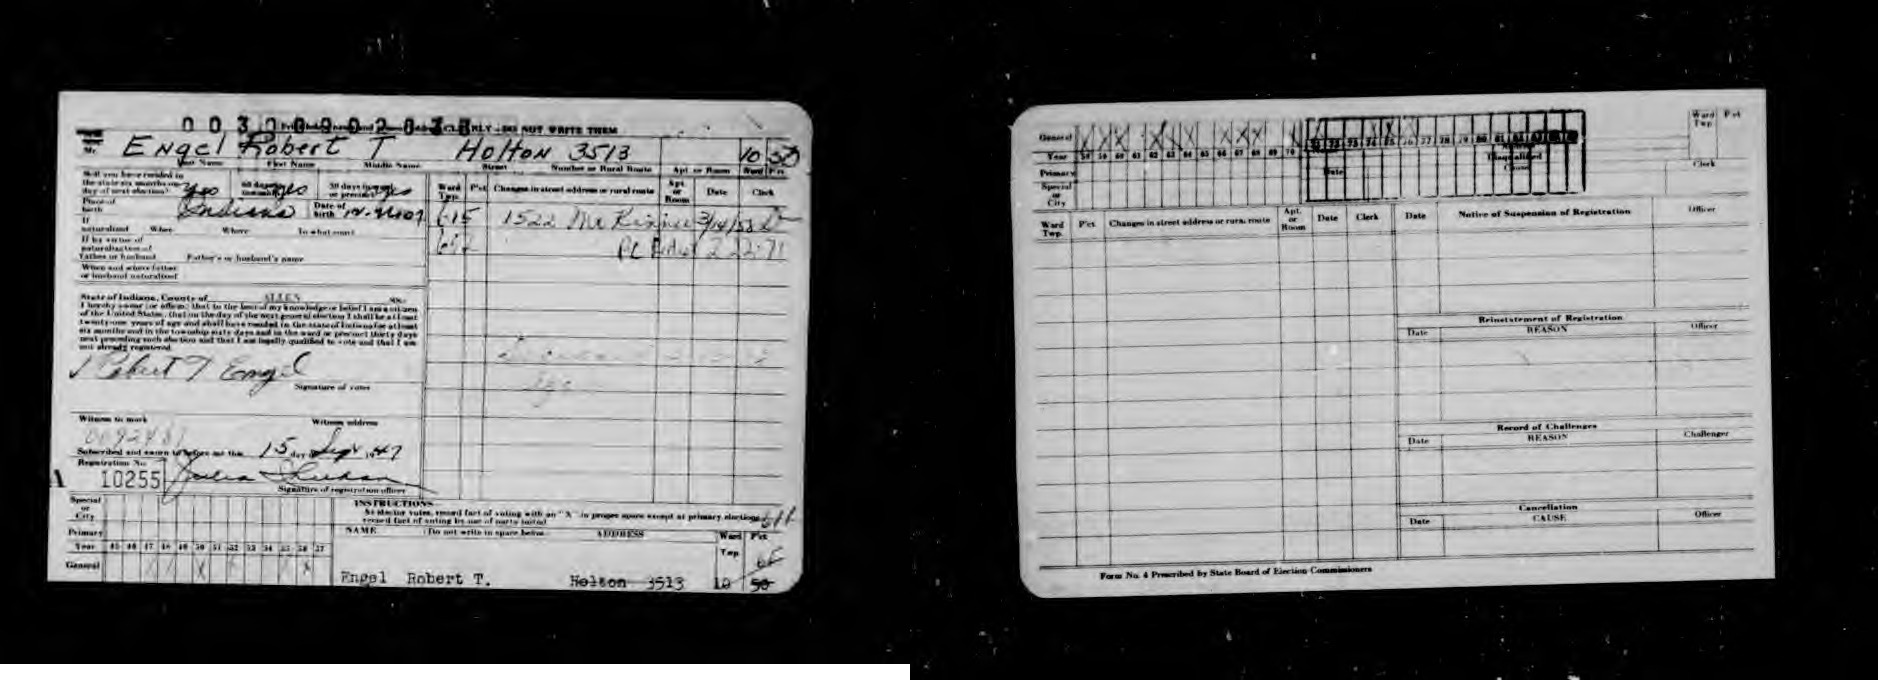 CLEARLY—DO NOT WRITE THEM
Mr. Engel Robert T Holton 3513 10 50
Last Name First Name Middle Name Street Number or Rural Route Apt. or Room Ward Pct.
Will you have resided in
the state six months on
day of next election? Yes 60 days in township? yes 30 days in ward or precinct? yes
Ward Twp. P'ct Changes in street address or rural route Apt. or Room Date Clerk
Place of birth Indiana Date of birth
615 1522 Mc Kinnie 3/14/58
If naturalized When Where In what court
2-22-71
If by virtue of
naturalization of
Father or husband Father's or husband's name
When and where father
or husband naturalized
State of Indiana, County of ALLEN ss:
I hereby swear (or affirm) that to the best of my knowledge or belief I am a citizen
of the United States, that on the day of the next general election I shall be at least
twenty-one years of age and shall have resided in the state of Indiana for at least
six months and in the township sixty days and in the ward or precinct thirty days
next preceding such election and that I am legally qualified to vote and that I am
not already registered.
Robert T Engel
Signature of voter
Witness to mark Witness address
Subscribed and sworn to before me this 15 day Sept 1947
Registration No.
A 10255
Signature of registration officer
Special or City
INSTRUCTIONS
As elector votes, record fact of voting with an "X" in proper space except at primary elections
record fact of voting by use of party initial
Primary
NAME (Do not write in space below) ADDRESS Ward Twp. Pct.
Year 45 46 47 48 49 50 51 52 53 54 55 56 57
General
Engel Robert T. Holton 3513 10 50
Ward Twp. Pct
General
Year 58 59 60 61 62 63 64 65 66 67 68 69 70 71 72 73 74 75 76 77 78 79 80 81 82 83
Primary
Disqualified
Date Cause
Clerk
Special or City
Ward Twp. P'ct Changes in street address or rural route Apt. or Room Date Clerk
Date Notice of Suspension of Registration Officer
Reinstatement of Registration
Date REASON Officer
Record of Challenges
Date REASON Challenger
Cancellation
Date CAUSE Officer
Form No. 4 Prescribed by State Board of Election Commissioners